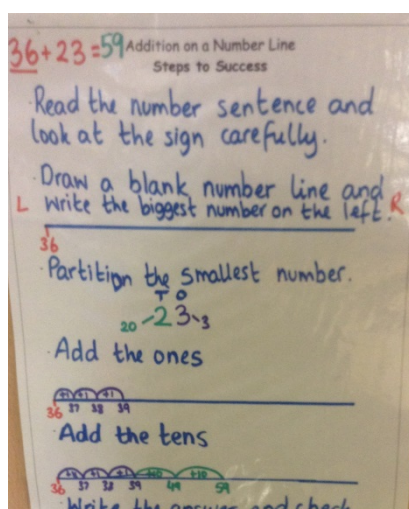 36+23=59 Addition on a Number Line
Steps to Success
·Read the number sentence and
look at the sign carefully.
·Draw a blank number line and
L write the biggest number on the left. R
36
·Partition the smallest number.
T O
20 23 3
·Add the ones
+1 +1 +1
36 37 38 39
·Add the tens
+1 +1 +1 +10 +10
36 37 38 39 49 59
·Write the answer and check